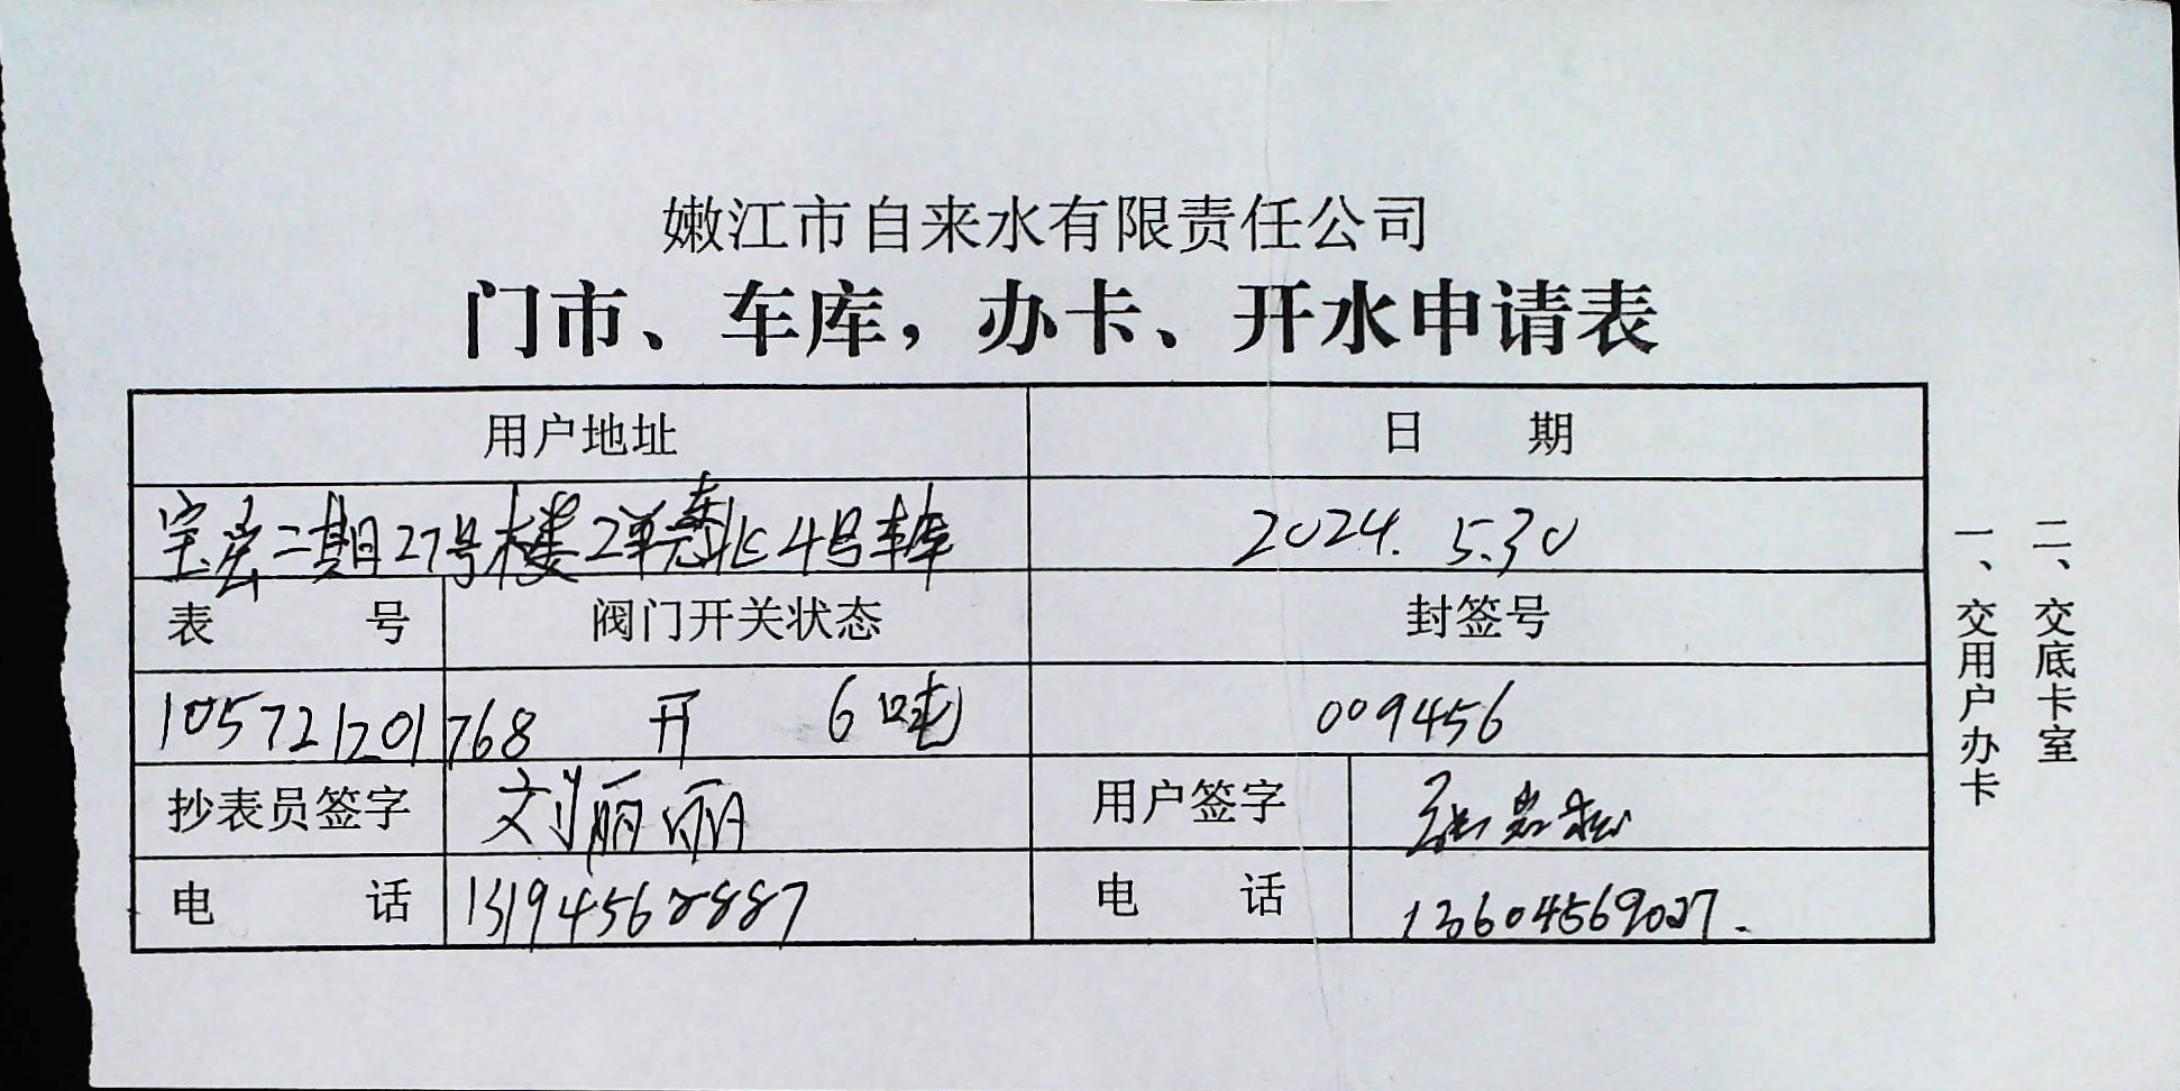 嫩江市自来水有限责任公司
门市、车库，办卡、开水申请表
用户地址 日 期
宝宏二期27号楼2单元东北4号车库 2024. 5.30
表 号 阀门开关状态 封签号
105721201768 开 6吨 009456
抄表员签字 刘丽丽 用户签字 张岩松
电 话 13194562887 电 话 13604569027.
一、交用户办卡
二、交底卡室